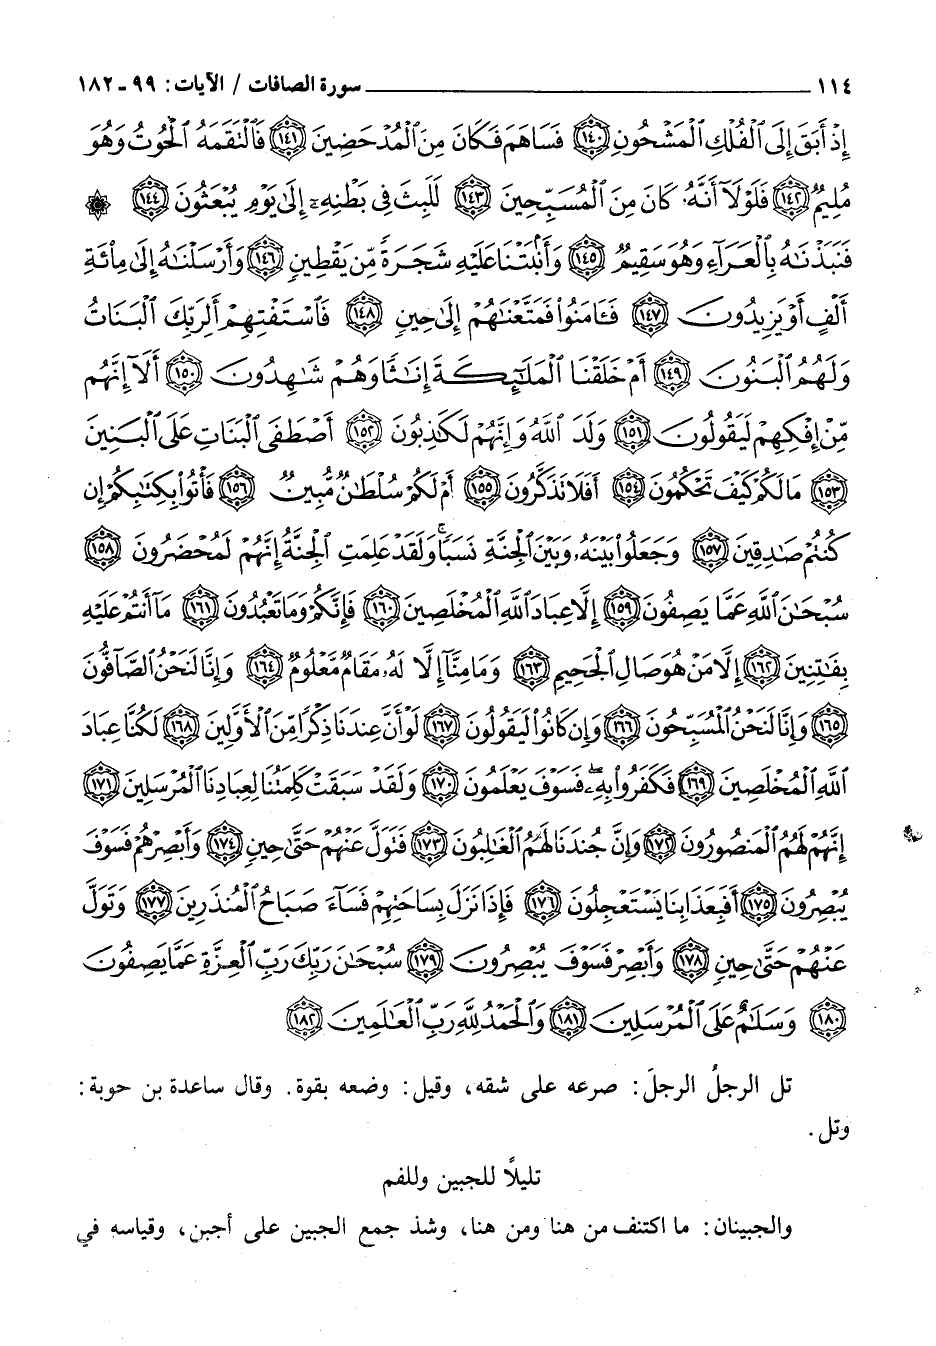 ١١٤ سورة الصافات / الآيات: ٩٩ـ١٨٢
إِذْ أَبَقَ إِلَى ٱلْفُلْكِ ٱلْمَشْحُونِ ١٤٠ فَسَاهَمَ فَكَانَ مِنَ ٱلْمُدْحَضِينَ ١٤١ فَٱلْتَقَمَهُ ٱلْحُوتُ وَهُوَ
مُلِيمٌ ١٤٢ فَلَوْلَآ أَنَّهُۥ كَانَ مِنَ ٱلْمُسَبِّحِينَ ١٤٣ لَلَبِثَ فِى بَطْنِهِۦٓ إِلَىٰ يَوْمِ يُبْعَثُونَ ١٤٤ ۞
فَنَبَذْنَٰهُ بِٱلْعَرَآءِ وَهُوَ سَقِيمٌ ١٤٥ وَأَنۢبَتْنَا عَلَيْهِ شَجَرَةً مِّن يَقْطِينٍ ١٤٦ وَأَرْسَلْنَٰهُ إِلَىٰ مِا۟ئَةِ
أَلْفٍ أَوْ يَزِيدُونَ ١٤٧ فَـَٔامَنُوا۟ فَمَتَّعْنَٰهُمْ إِلَىٰ حِينٍ ١٤٨ فَٱسْتَفْتِهِمْ أَلِرَبِّكَ ٱلْبَنَاتُ
وَلَهُمُ ٱلْبَنُونَ ١٤٩ أَمْ خَلَقْنَا ٱلْمَلَٰٓئِكَةَ إِنَٰثًا وَهُمْ شَٰهِدُونَ ١٥٠ أَلَآ إِنَّهُم
مِّنْ إِفْكِهِمْ لَيَقُولُونَ ١٥١ وَلَدَ ٱللَّهُ وَإِنَّهُمْ لَكَٰذِبُونَ ١٥٢ أَصْطَفَى ٱلْبَنَاتِ عَلَى ٱلْبَنِينَ
١٥٣ مَا لَكُمْ كَيْفَ تَحْكُمُونَ ١٥٤ أَفَلَا تَذَكَّرُونَ ١٥٥ أَمْ لَكُمْ سُلْطَٰنٌ مُّبِينٌ ١٥٦ فَأْتُوا۟ بِكِتَٰبِكُمْ إِن
كُنتُمْ صَٰدِقِينَ ١٥٧ وَجَعَلُوا۟ بَيْنَهُۥ وَبَيْنَ ٱلْجِنَّةِ نَسَبًا ۚ وَلَقَدْ عَلِمَتِ ٱلْجِنَّةُ إِنَّهُمْ لَمُحْضَرُونَ ١٥٨
سُبْحَٰنَ ٱللَّهِ عَمَّا يَصِفُونَ ١٥٩ إِلَّا عِبَادَ ٱللَّهِ ٱلْمُخْلَصِينَ ١٦٠ فَإِنَّكُمْ وَمَا تَعْبُدُونَ ١٦١ مَآ أَنتُمْ عَلَيْهِ
بِفَٰتِنِينَ ١٦٢ إِلَّا مَنْ هُوَ صَالِ ٱلْجَحِيمِ ١٦٣ وَمَا مِنَّآ إِلَّا لَهُۥ مَقَامٌ مَّعْلُومٌ ١٦٤ وَإِنَّا لَنَحْنُ ٱلصَّآفُّونَ
١٦٥ وَإِنَّا لَنَحْنُ ٱلْمُسَبِّحُونَ ١٦٦ وَإِن كَانُوا۟ لَيَقُولُونَ ١٦٧ لَوْ أَنَّ عِندَنَا ذِكْرًا مِّنَ ٱلْأَوَّلِينَ ١٦٨ لَكُنَّا عِبَادَ
ٱللَّهِ ٱلْمُخْلَصِينَ ١٦٩ فَكَفَرُوا۟ بِهِۦ ۖ فَسَوْفَ يَعْلَمُونَ ١٧٠ وَلَقَدْ سَبَقَتْ كَلِمَتُنَا لِعِبَادِنَا ٱلْمُرْسَلِينَ ١٧١
إِنَّهُمْ لَهُمُ ٱلْمَنصُورُونَ ١٧٢ وَإِنَّ جُندَنَا لَهُمُ ٱلْغَٰلِبُونَ ١٧٣ فَتَوَلَّ عَنْهُمْ حَتَّىٰ حِينٍ ١٧٤ وَأَبْصِرْهُمْ فَسَوْفَ
يُبْصِرُونَ ١٧٥ أَفَبِعَذَابِنَا يَسْتَعْجِلُونَ ١٧٦ فَإِذَا نَزَلَ بِسَاحَتِهِمْ فَسَآءَ صَبَاحُ ٱلْمُنذَرِينَ ١٧٧ وَتَوَلَّ
عَنْهُمْ حَتَّىٰ حِينٍ ١٧٨ وَأَبْصِرْ فَسَوْفَ يُبْصِرُونَ ١٧٩ سُبْحَٰنَ رَبِّكَ رَبِّ ٱلْعِزَّةِ عَمَّا يَصِفُونَ
١٨٠ وَسَلَٰمٌ عَلَى ٱلْمُرْسَلِينَ ١٨١ وَٱلْحَمْدُ لِلَّهِ رَبِّ ٱلْعَٰلَمِينَ ١٨٢
تل الرجلُ الرجلَ: صرعه على شقه، وقيل: وضعه بقوة. وقال ساعدة بن حوبة:
وتل.
تليلًا للجبين وللفم
والجبينان: ما اكتنف من هنا ومن هنا، وشذ جمع الجبين على أجبن، وقياسه في